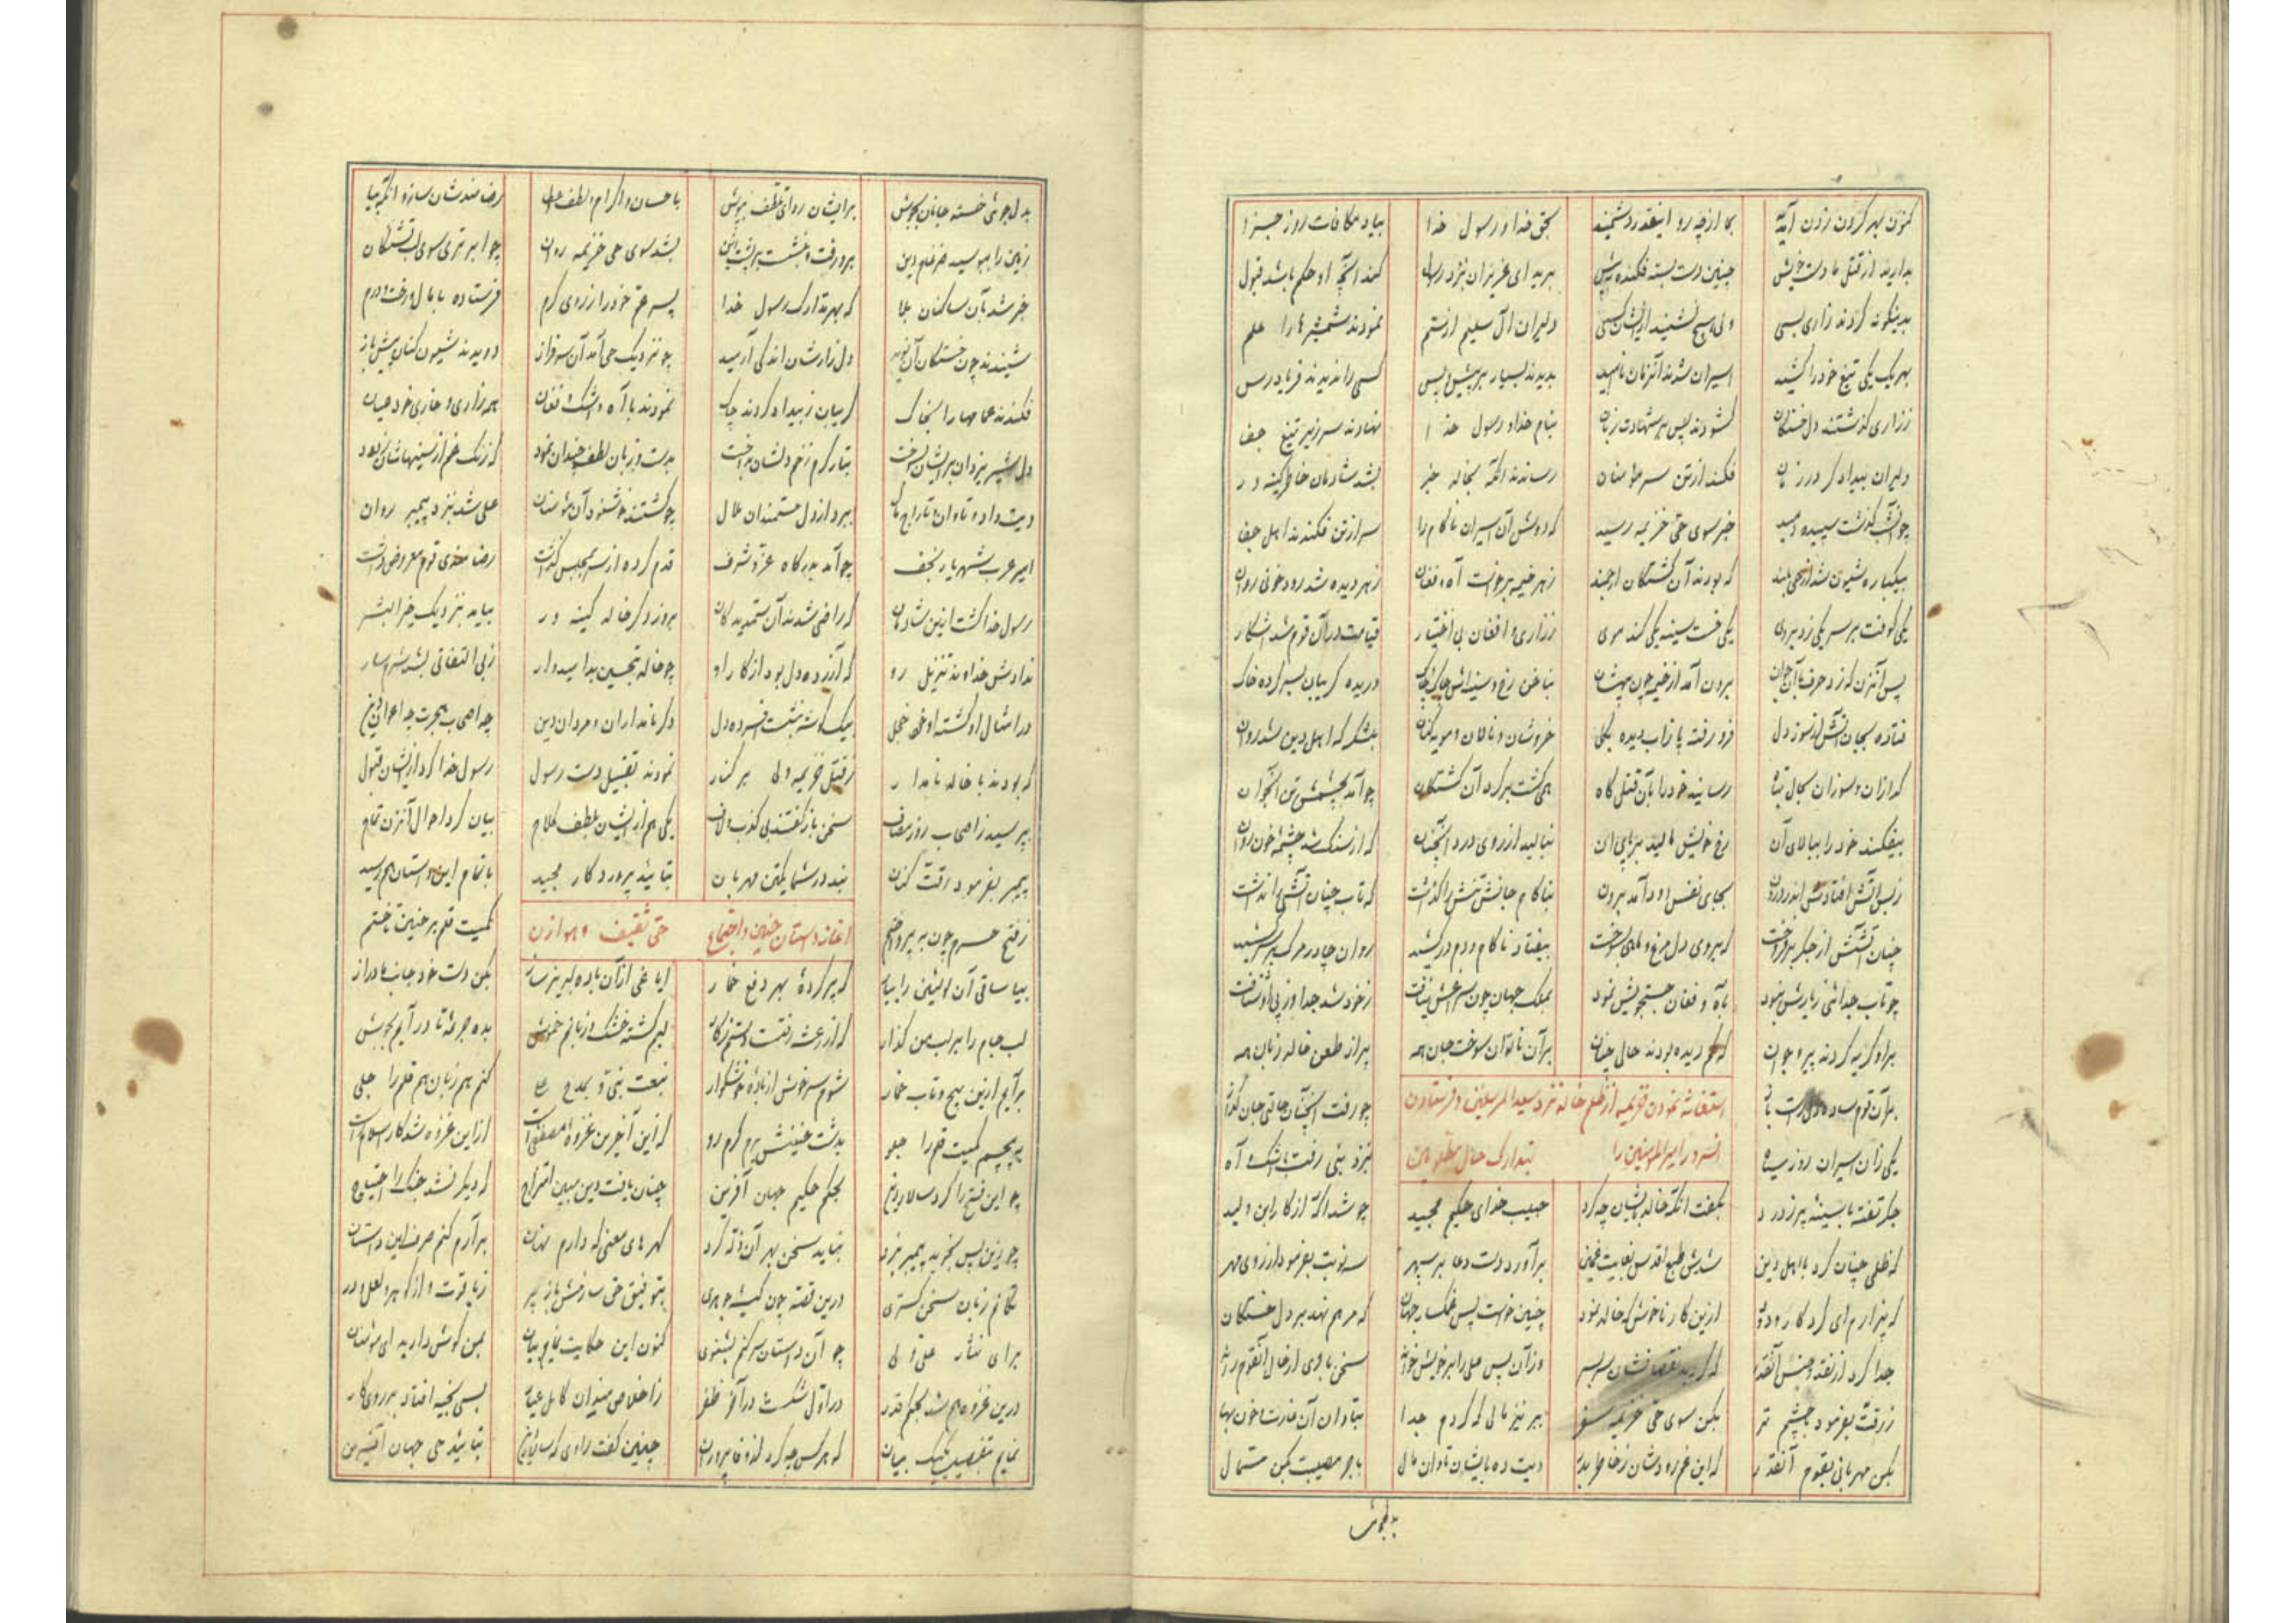 کنون بهر گردن زدن آمدید بما از چه رو اینقدر دشمنید بحق خدا و رسول خدا بیاد مکافات روز جزا
بدارید از قتل ما دست خویش چنین دست بسته فکنده به پیش برید ای عزیزان بنزد رسول کند آنچه او حکم باشد قبول
بدینگونه کردند زاری بسی ولی هیچ نشنید ازیشان کسی دلیران آل سلیم از ستم نمودند شمشیرها را علم
بهر یک یکی تیغ خود را کشید اسیران شدند آنزمان ناامید بدیدند بسیار در پیش و پس کسی را ندیدند فریادرس
ز زاری گذشتند دل خستگان گشودند پس بر شهادت زبان بنام خدا و رسول خدا نهادند سر زیر تیغ جفا
دلیران بیدادگر در زمان فکندند از تن سر مؤمنان رساندند آنگه بخالد خبر بشد شادمان خاطر کینه ور
چو آنشب گذشت سپیده دمید خبر سوی حی خزیمه رسید که دوش آن اسیران ناکام را سر از تن فکندند اهل جفا
بیکباره شیون شد از حی بلند که بودند آن کشتگان ارجمند ز هر خیمه برخواست آه و فغان ز هر دیده شد رود خونی روان
یکی کوفت بر سر یکی زد بروی یکی خست سینه یکی کند موی ز زاری و افغان بی اختیار قیامت در آن قوم شد آشکار
پس آنزن که زد حرف با آن جوان برون آمد از خیمه چون بیهشان بناخن رخ و سینه اش چاک چاک دریده گریبان بسر کرده خاک
فتاده بجان آتش از سوز دل فرو رفته پا ز آب دیده بگل خروشان و نالان و مویه کنان بلشکرگه اهل دین شد روان
گدازان و سوزان بحال تباه رسانید خود را بآن قتلگاه همی گشت بر گرد آن کشتگان چو آمد بچشمش تن آنجوان
بیفکند خود را ببالای آن رخ خویش مالید بر پای آن بنالید از روی درد آنچنان که از سنگ شد چشمه خون روان
ز بس آتش افتادش اندر درون بجای نفس دود آمد برون بناکام جانش تنش را گذاشت که تاب چنان آتشی را نداشت
چنان آتشش از جگر برفروخت که بروی دل مرغ و ماهی بسوخت بیفتاد ناکام و دم درکشید روان چادر مرگ بر سر کشید
چو تاب جدائی ز یارش نبود بآه و فغان جستجویش نمود بملک جهان چون سراغش نیافت ز خود شد جدا و ز پی او شتافت
بر او گریه کردند پیر و جوان که کم دیده بودند حالی چنان بر آن ناتوان سوخت جان همه پر از طعن خالد زبان همه
بر آن قوم چو رفت آنچنان حالتی جان گداز
استغاثه نمودن خزیمه از ظلم خالد نزد سید المرسلین و فرستادن
یکی زان اسیران روز سیاه بنزد نبی رفت با اشک و آه
انسرور امیرالمؤمنین را بتدارک حال مظلومین
جگر تفته با سینه پر ز درد بگفت آنکه خالد بایشان چه کرد حبیب خدای حکیم مجید چو شد آگه از کار ابن ولید
که ظلمی چنان کرد با اهل دین شدش طبع اقدس بغایت غمین برآورد دست دعا بر سپهر سه نوبت بفرمود از روی مهر
که بیزارم ای کردگار ودود ازین کار ناخوش که خالد نمود چنین خواست پس غمگسار جهان که مرهم نهد بر دل خستگان
جدا کرد از نقد و جنس آنقدر که گردید نقصانشان سربسر وزان پس علی را بر خویش خواند سخن با وی از حال آنقوم راند
ز رقت بفرمود با چشم تر بکن سوی حی خزیمه سفر ببر نیز مالی که کردم جدا بتاوان آن غارت و خون بها
بکن مهربانی بقوم آنقدر که این غم رودشان ز خاطر بدر دیت ده بایشان و تاوان مال باجر مصیبت بکن مشتمال
بدلجوئی
بدلجوئی خسته جانان بکوش بر ایشان ردای تلطف بپوش باحسان و اکرام و لطف و عطا رضامندشان ساز و آنگه بیا
زمین را ببوسید ضرغام دین برون رفت و بنشست بر پشت زین بشد سوی حی خزیمه روان چو ابر تری سوی لب تشنگان
خبر شد بآن ساکنان بلا که بهر تدارک رسول خدا پسر عم خود را ز روی کرم فرستاده با مال و رخت و درم
شنیدند چون خستگان آن نوید دل زارشان اندکی آرمید چو نزدیک حی آمد آن سرفراز دویدند شیون کنان پیش باز
فکندند عمامها را بخاک گریبان ز بیداد کردند چاک نمودند با آه و اشک و فغان همه زاری و خاری خود عیان
دل شیر یزدان بر ایشان بسوخت بتار کرم زخم دلشان بدوخت بدست و زبان لطف چندان نمود که زنگ غم از سینهاشان زدود
دیت داد و تاوان و تاراج مال ببرد از دل مستمندان ملال چو گشتند خوشنود آن مؤمنان علی شد بنزد پیمبر روان
امیر عرب شهریار نجف چو آمد بدرگاه عز و شرف قدم کرده از سر بمجلس گذشت رضامندی قوم معروض داشت
رسول خدا گشت ازین شادمان که راضی شدند آن ستمدیدگان بروز دگر خالد کینه ور بیامد بنزدیک خیرالبشر
ندادش خداوند تنزیل رو که آزرده دل بود از کار او چو خالد بتحسین بد امیدوار ز بی التفاتی بشد شرمسار
بیک گوشه بنشست افسرده دل دگر نامداران و مردان دین
که بودند با خالد نامدار ز قتل خزیمه ولی بر کنار نمودند تقبیل دست رسول رسول خدا کرد از ایشان قبول
بپرسید ز اصحاب روز مصاف سخن باز گفتند بی کذب و لاف یکی هم از ایشان بلطف کلام بیان کرد احوال آنزن تمام
پیمبر بفرمود رقت کنان نبد در شما یکتن مهربان بتائید پروردگار مجید باتمام این داستان هم رسید
آغاز داستان حنین و اجتماع حی ثقیف و هوازن
ز فتح حرم چون بپرداختم کمیت قلم بر حنین تاختم
بیا ساقی آن لب بکن دست خود جانب ما دراز
لب جام را بر لب من گذار لبم گشته خشک و زبانم خموش بده جرعه تا در آیم بجوش
برآیم ازین پیچ و تاب خمار شوم سرخوش از باده خوشگوار بنعت نبی و بمدح علی کنم هم زبان هم قلم را جلی
بدشت حنینش برم گرم رو که این آخرین غزوه مصطفی است ازین غزوه شد کار اسلام راست
چو این فتح را کرد سالار دین بحکم حکیم جهان آفرین چنان یافت دین مبین امتزاج که دیگر نشد جنگ را احتیاج
گهرهای معنی که دارم نهان برآرم کنم صرف این داستان
درین قصه چون بتوفیق حق سازمش باز پر ز یاقوت و از گوهر و لعل و در
برای نثار علی ولی چو آن داستان سر کنم بشنوی کنون این حکایت نمایم بیان بمن گوش دارید ای مؤمنان
درین غزوه هم شد بحکم قدر در اول شکست و در آخر ظفر بسی بخیه افتاد بر روی کار
نمایم بتفصیل یک یک بیان چنین گفت راوی بتائید حی جهان آفرین